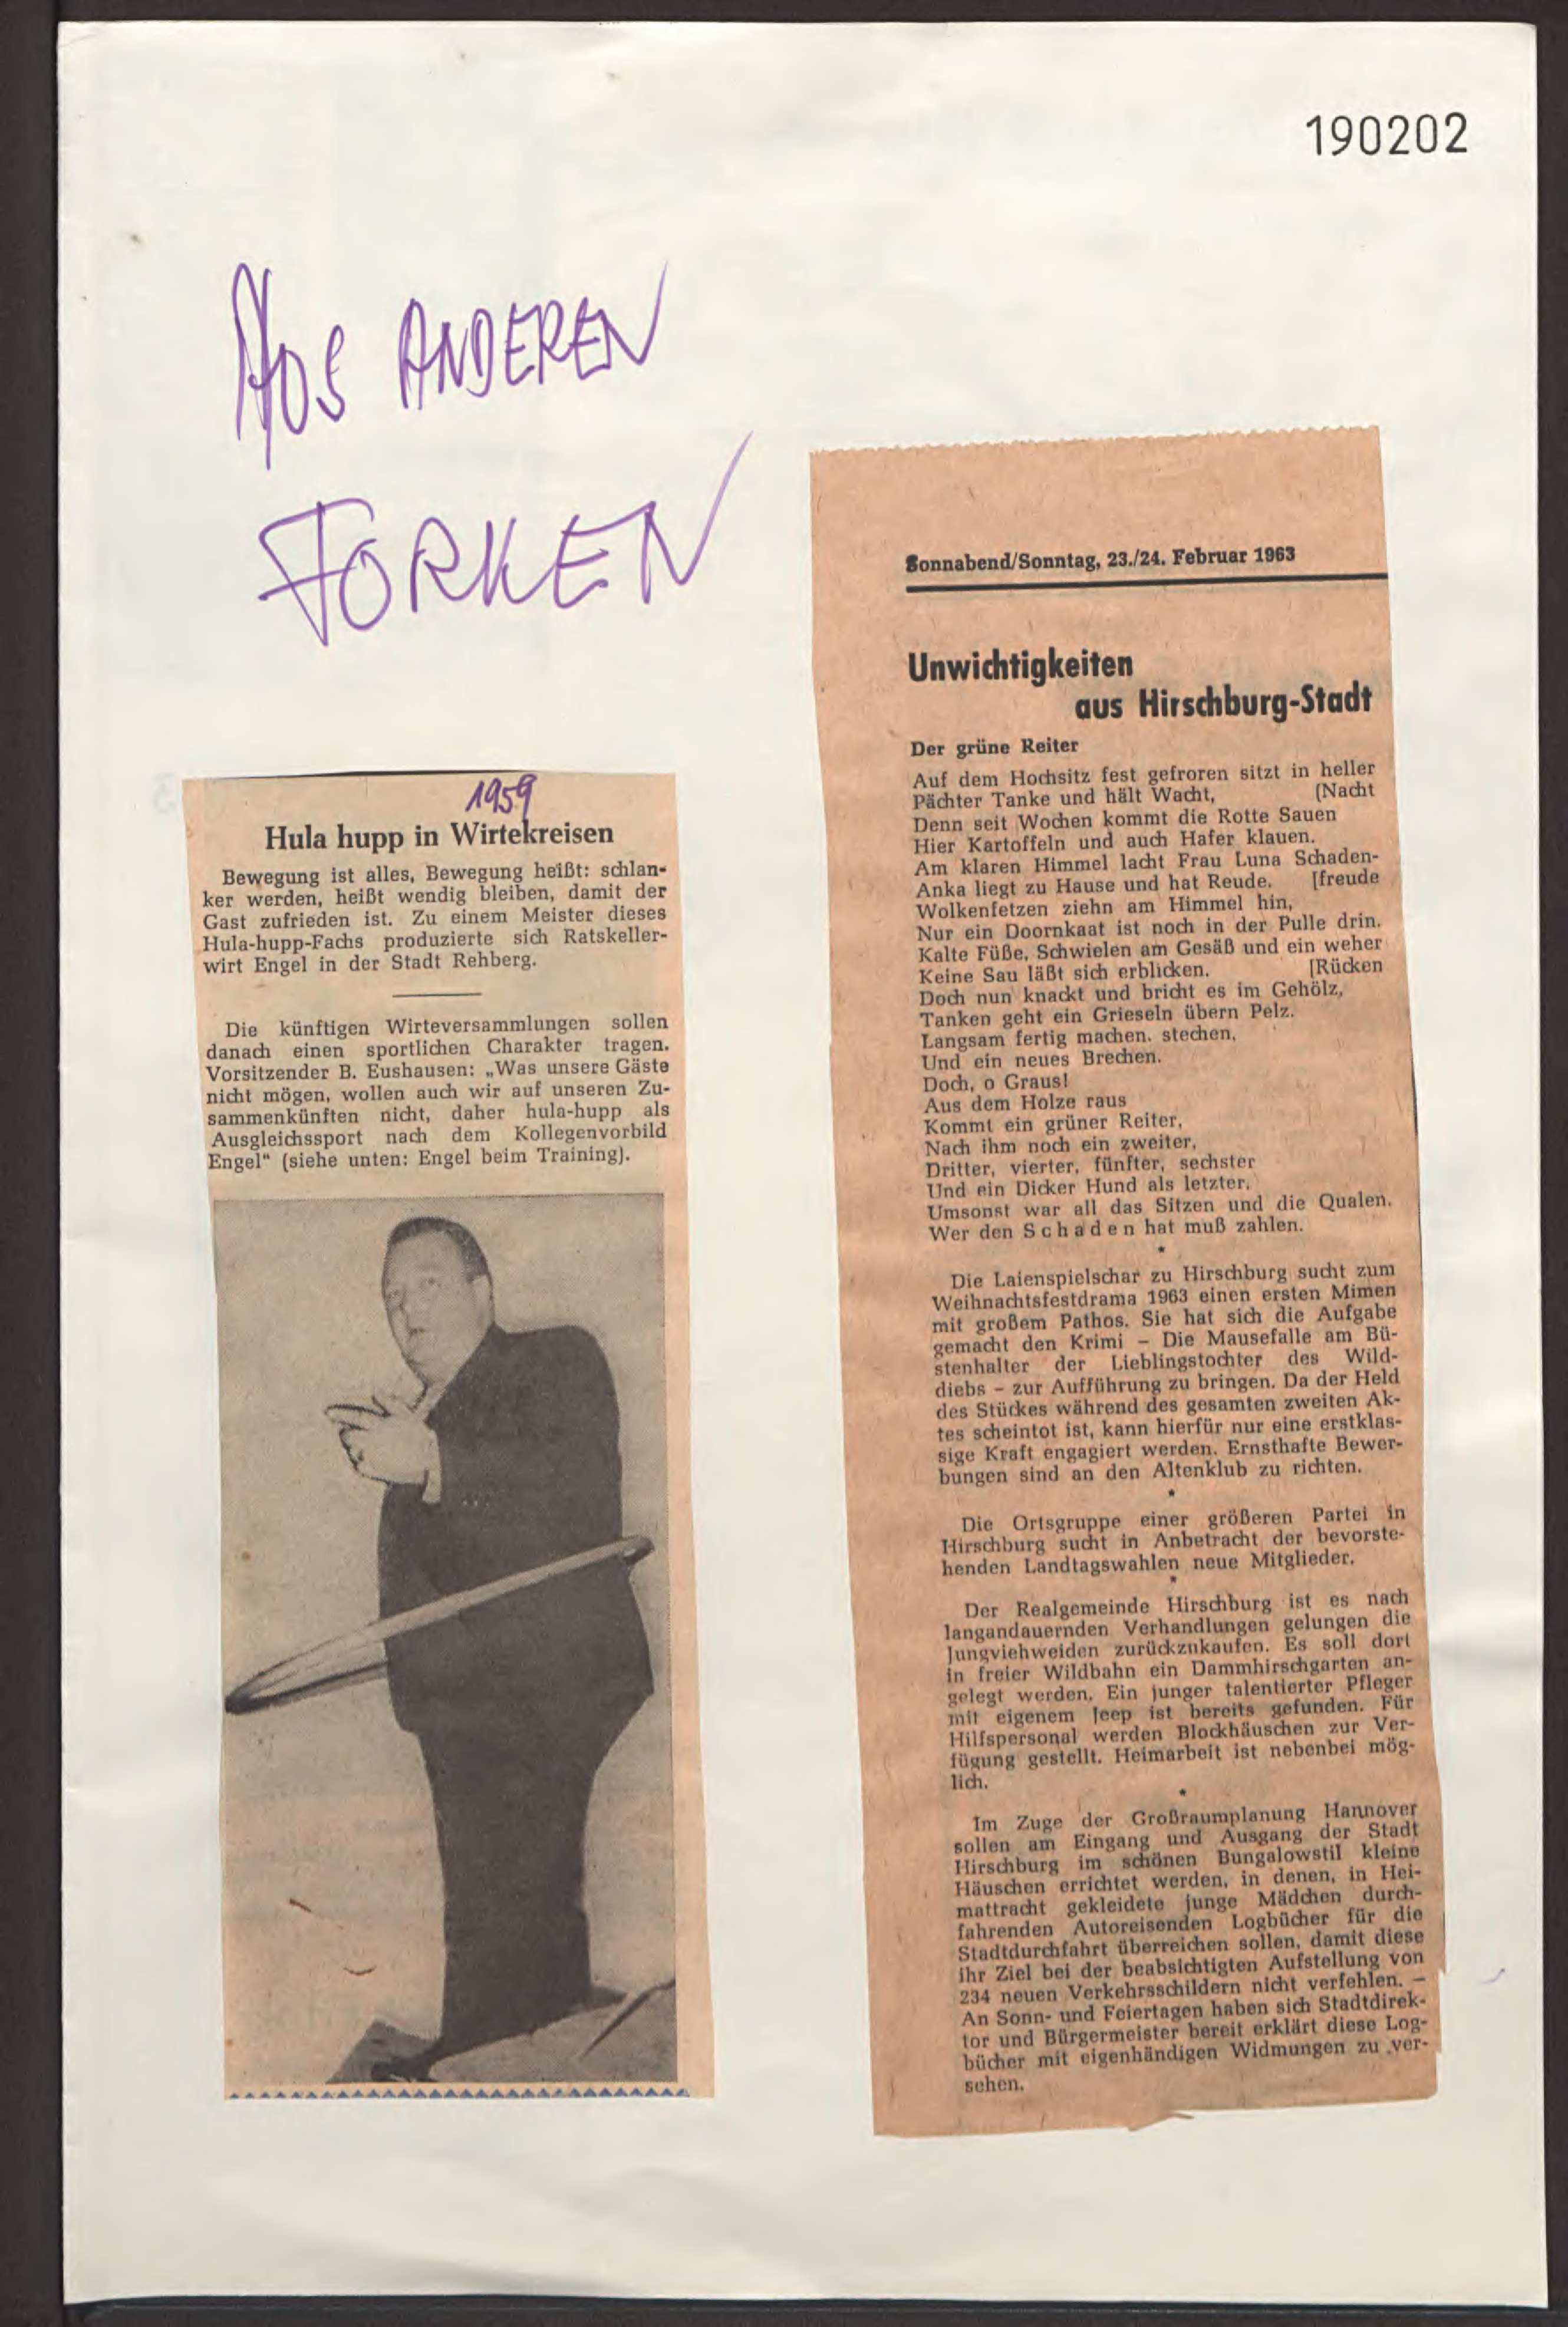 190202
AUS ANDEREN
FORKEN
1959
Hula hupp in Wirtekreisen
Bewegung ist alles, Bewegung heißt: schlan-
ker werden, heißt wendig bleiben, damit der
Gast zufrieden ist. Zu einem Meister dieses
Hula-hupp-Fachs produzierte sich Ratskeller-
wirt Engel in der Stadt Rehberg.
Die künftigen Wirteversammlungen sollen
danach einen sportlichen Charakter tragen.
Vorsitzender B. Eushausen: „Was unsere Gäste
nicht mögen, wollen auch wir auf unseren Zu-
sammenkünften nicht, daher hula-hupp als
Ausgleichssport nach dem Kollegenvorbild
Engel“ (siehe unten: Engel beim Training).
Sonnabend/Sonntag, 23./24. Februar 1963
Unwichtigkeiten
aus Hirschburg-Stadt
Der grüne Reiter
Auf dem Hochsitz fest gefroren sitzt in heller
Pächter Tanke und hält Wacht, (Nacht
Denn seit Wochen kommt die Rotte Sauen
Hier Kartoffeln und auch Hafer klauen.
Am klaren Himmel lacht Frau Luna Schaden-
Anka liegt zu Hause und hat Reude. [freude
Wolkenfetzen ziehn am Himmel hin,
Nur ein Doornkaat ist noch in der Pulle drin.
Kalte Füße, Schwielen am Gesäß und ein weher
Keine Sau läßt sich erblicken. [Rücken
Doch nun knackt und bricht es im Gehölz,
Tanken geht ein Grieseln übern Pelz.
Langsam fertig machen. stechen,
Und ein neues Brechen.
Doch, o Graus!
Aus dem Holze raus
Kommt ein grüner Reiter,
Nach ihm noch ein zweiter,
Dritter, vierter, fünfter, sechster
Und ein Dicker Hund als letzter.
Umsonst war all das Sitzen und die Qualen.
Wer den Schaden hat muß zahlen.
*
Die Laienspielschar zu Hirschburg sucht zum
Weihnachtsfestdrama 1963 einen ersten Mimen
mit großem Pathos. Sie hat sich die Aufgabe
gemacht den Krimi – Die Mausefalle am Bü-
stenhalter der Lieblingstochter des Wild-
diebs – zur Aufführung zu bringen. Da der Held
des Stückes während des gesamten zweiten Ak-
tes scheintot ist, kann hierfür nur eine erstklas-
sige Kraft engagiert werden. Ernsthafte Bewer-
bungen sind an den Altenklub zu richten.
*
Die Ortsgruppe einer größeren Partei in
Hirschburg sucht in Anbetracht der bevorste-
henden Landtagswahlen neue Mitglieder.
*
Der Realgemeinde Hirschburg ist es nach
langandauernden Verhandlungen gelungen die
Jungviehweiden zurückzukaufen. Es soll dort
in freier Wildbahn ein Dammhirschgarten an-
gelegt werden. Ein junger talentierter Pfleger
mit eigenem Jeep ist bereits gefunden. Für
Hilfspersonal werden Blockhäuschen zur Ver-
fügung gestellt. Heimarbeit ist nebenbei mög-
lich.
*
Im Zuge der Großraumplanung Hannover
sollen am Eingang und Ausgang der Stadt
Hirschburg im schönen Bungalowstil kleine
Häuschen errichtet werden, in denen, in Hei-
mattracht gekleidete junge Mädchen durch-
fahrenden Autoreisenden Logbücher für die
Stadtdurchfahrt überreichen sollen, damit diese
ihr Ziel bei der beabsichtigten Aufstellung von
234 neuen Verkehrsschildern nicht verfehlen. –
An Sonn- und Feiertagen haben sich Stadtdirek-
tor und Bürgermeister bereit erklärt diese Log-
bücher mit eigenhändigen Widmungen zu ver-
sehen.